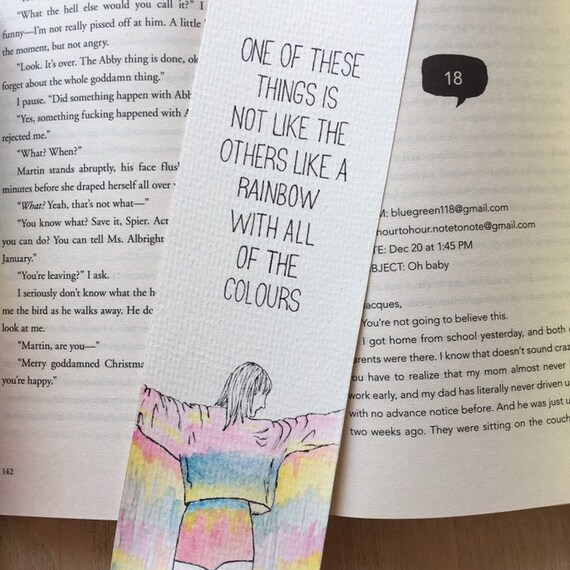 “What the hell else would you call it?” I
funny—I’m not really pissed off at him. A little
the moment, but not angry.
“Look. It’s over. The Abby thing is done, ok
forget about the whole goddamn thing.”
I pause. “Did something happen with Abb
“Yes, something fucking happened with A
rejected me.”
“What? When?”
Martin stands abruptly, his face flus
minutes before she draped herself all over
“What? Yeah, that’s not what—”
“You know what? Save it, Spier. Act
you can do? You can tell Ms. Albright
January.”
“You’re leaving?” I ask.
I seriously don’t know what the h
me the bird as he walks away. He do
look at me.
“Martin, are you—”
“Merry goddamned Christma
you’re happy.”
142
ONE OF THESE
THINGS IS
NOT LIKE THE
OTHERS LIKE A
RAINBOW
WITH ALL
OF THE
COLOURS
18
M: bluegreen118@gmail.com
hourtohour.notetonote@gmail.com
TE: Dec 20 at 1:45 PM
BJECT: Oh baby
Jacques,
You’re not going to believe this.
I got home from school yesterday, and both
arents were there. I know that doesn’t sound craz
ou have to realize that my mom almost never
work early, and my dad has literally never driven u
with no advance notice before. And he was just u
two weeks ago. They were sitting on the couch